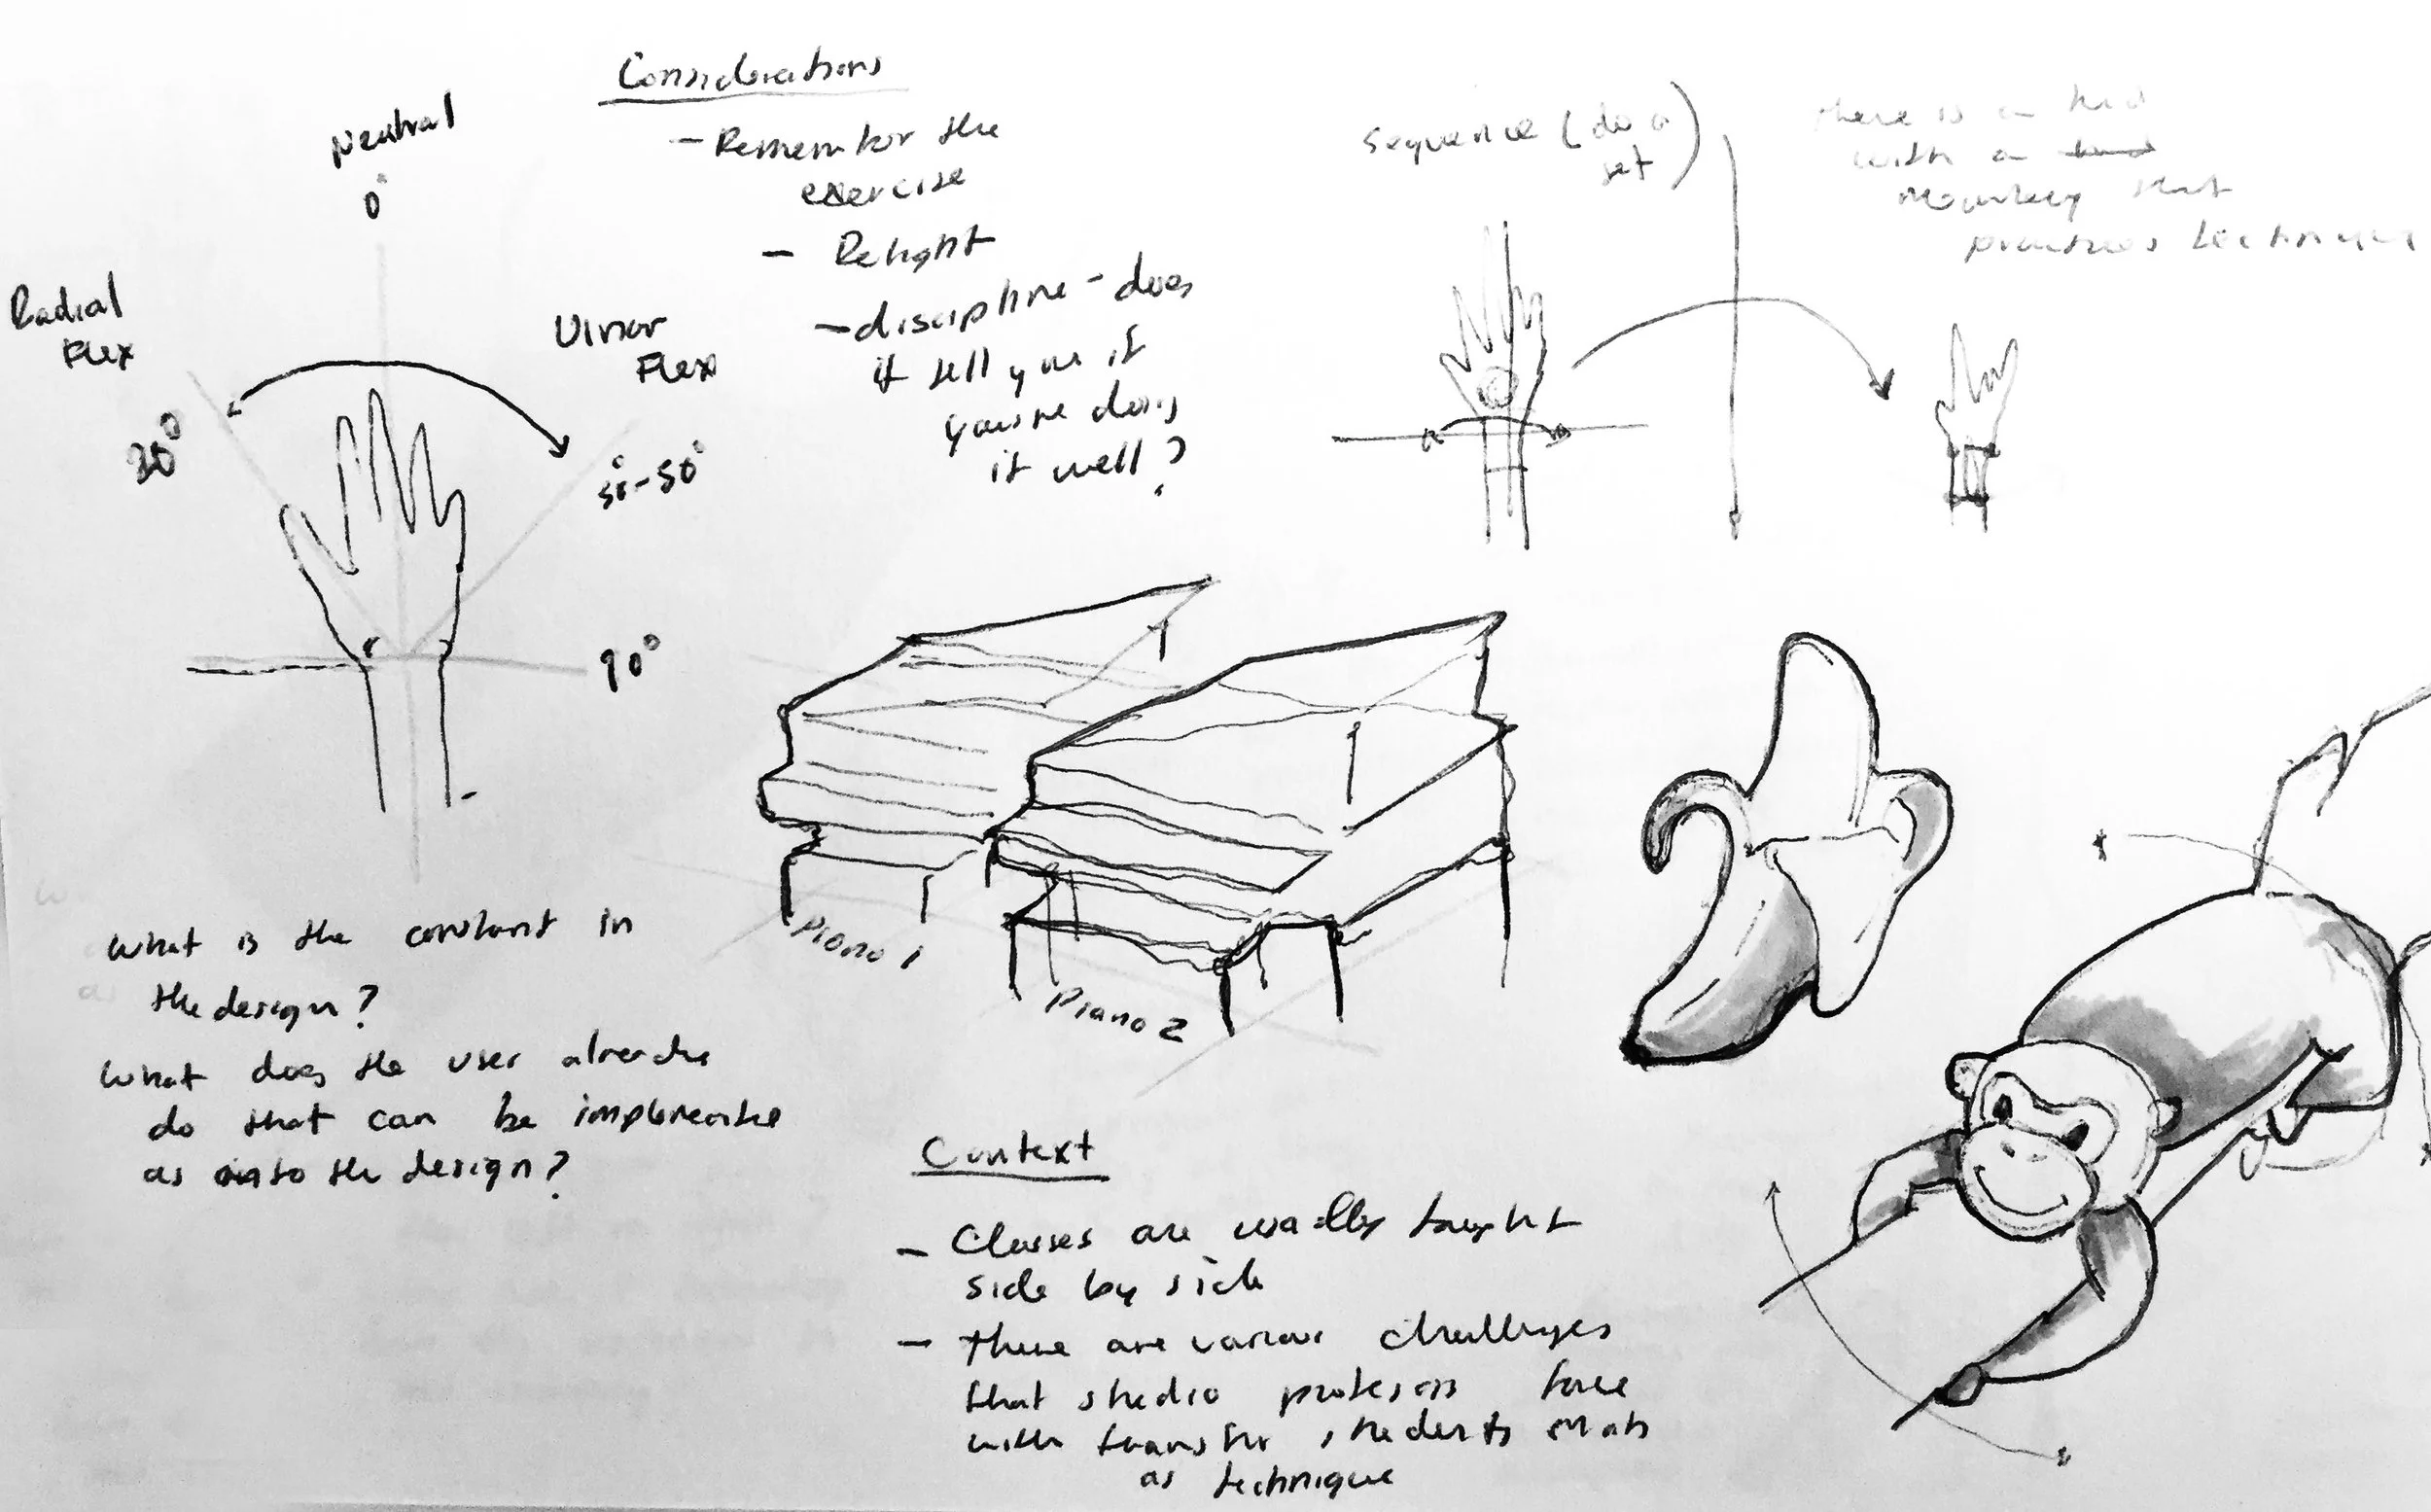 Considerations
- Remember the
exercise
- Relight
- discipline - does
it tell you if
you're doing
it well?
Neutral
0°
Radial
Flex
30°
Ulnar
Flex
50°-50°
90°
sequence (do a
set)
there is a
with a
Monkey that
practices technique
Piano 1
Piano 2
What is the constant in
the design?
What does the user
do that can be
as into the design?
Context
- Classes are usually taught
side by side
- There are various challenges
that studio face
with transfer students
as technique